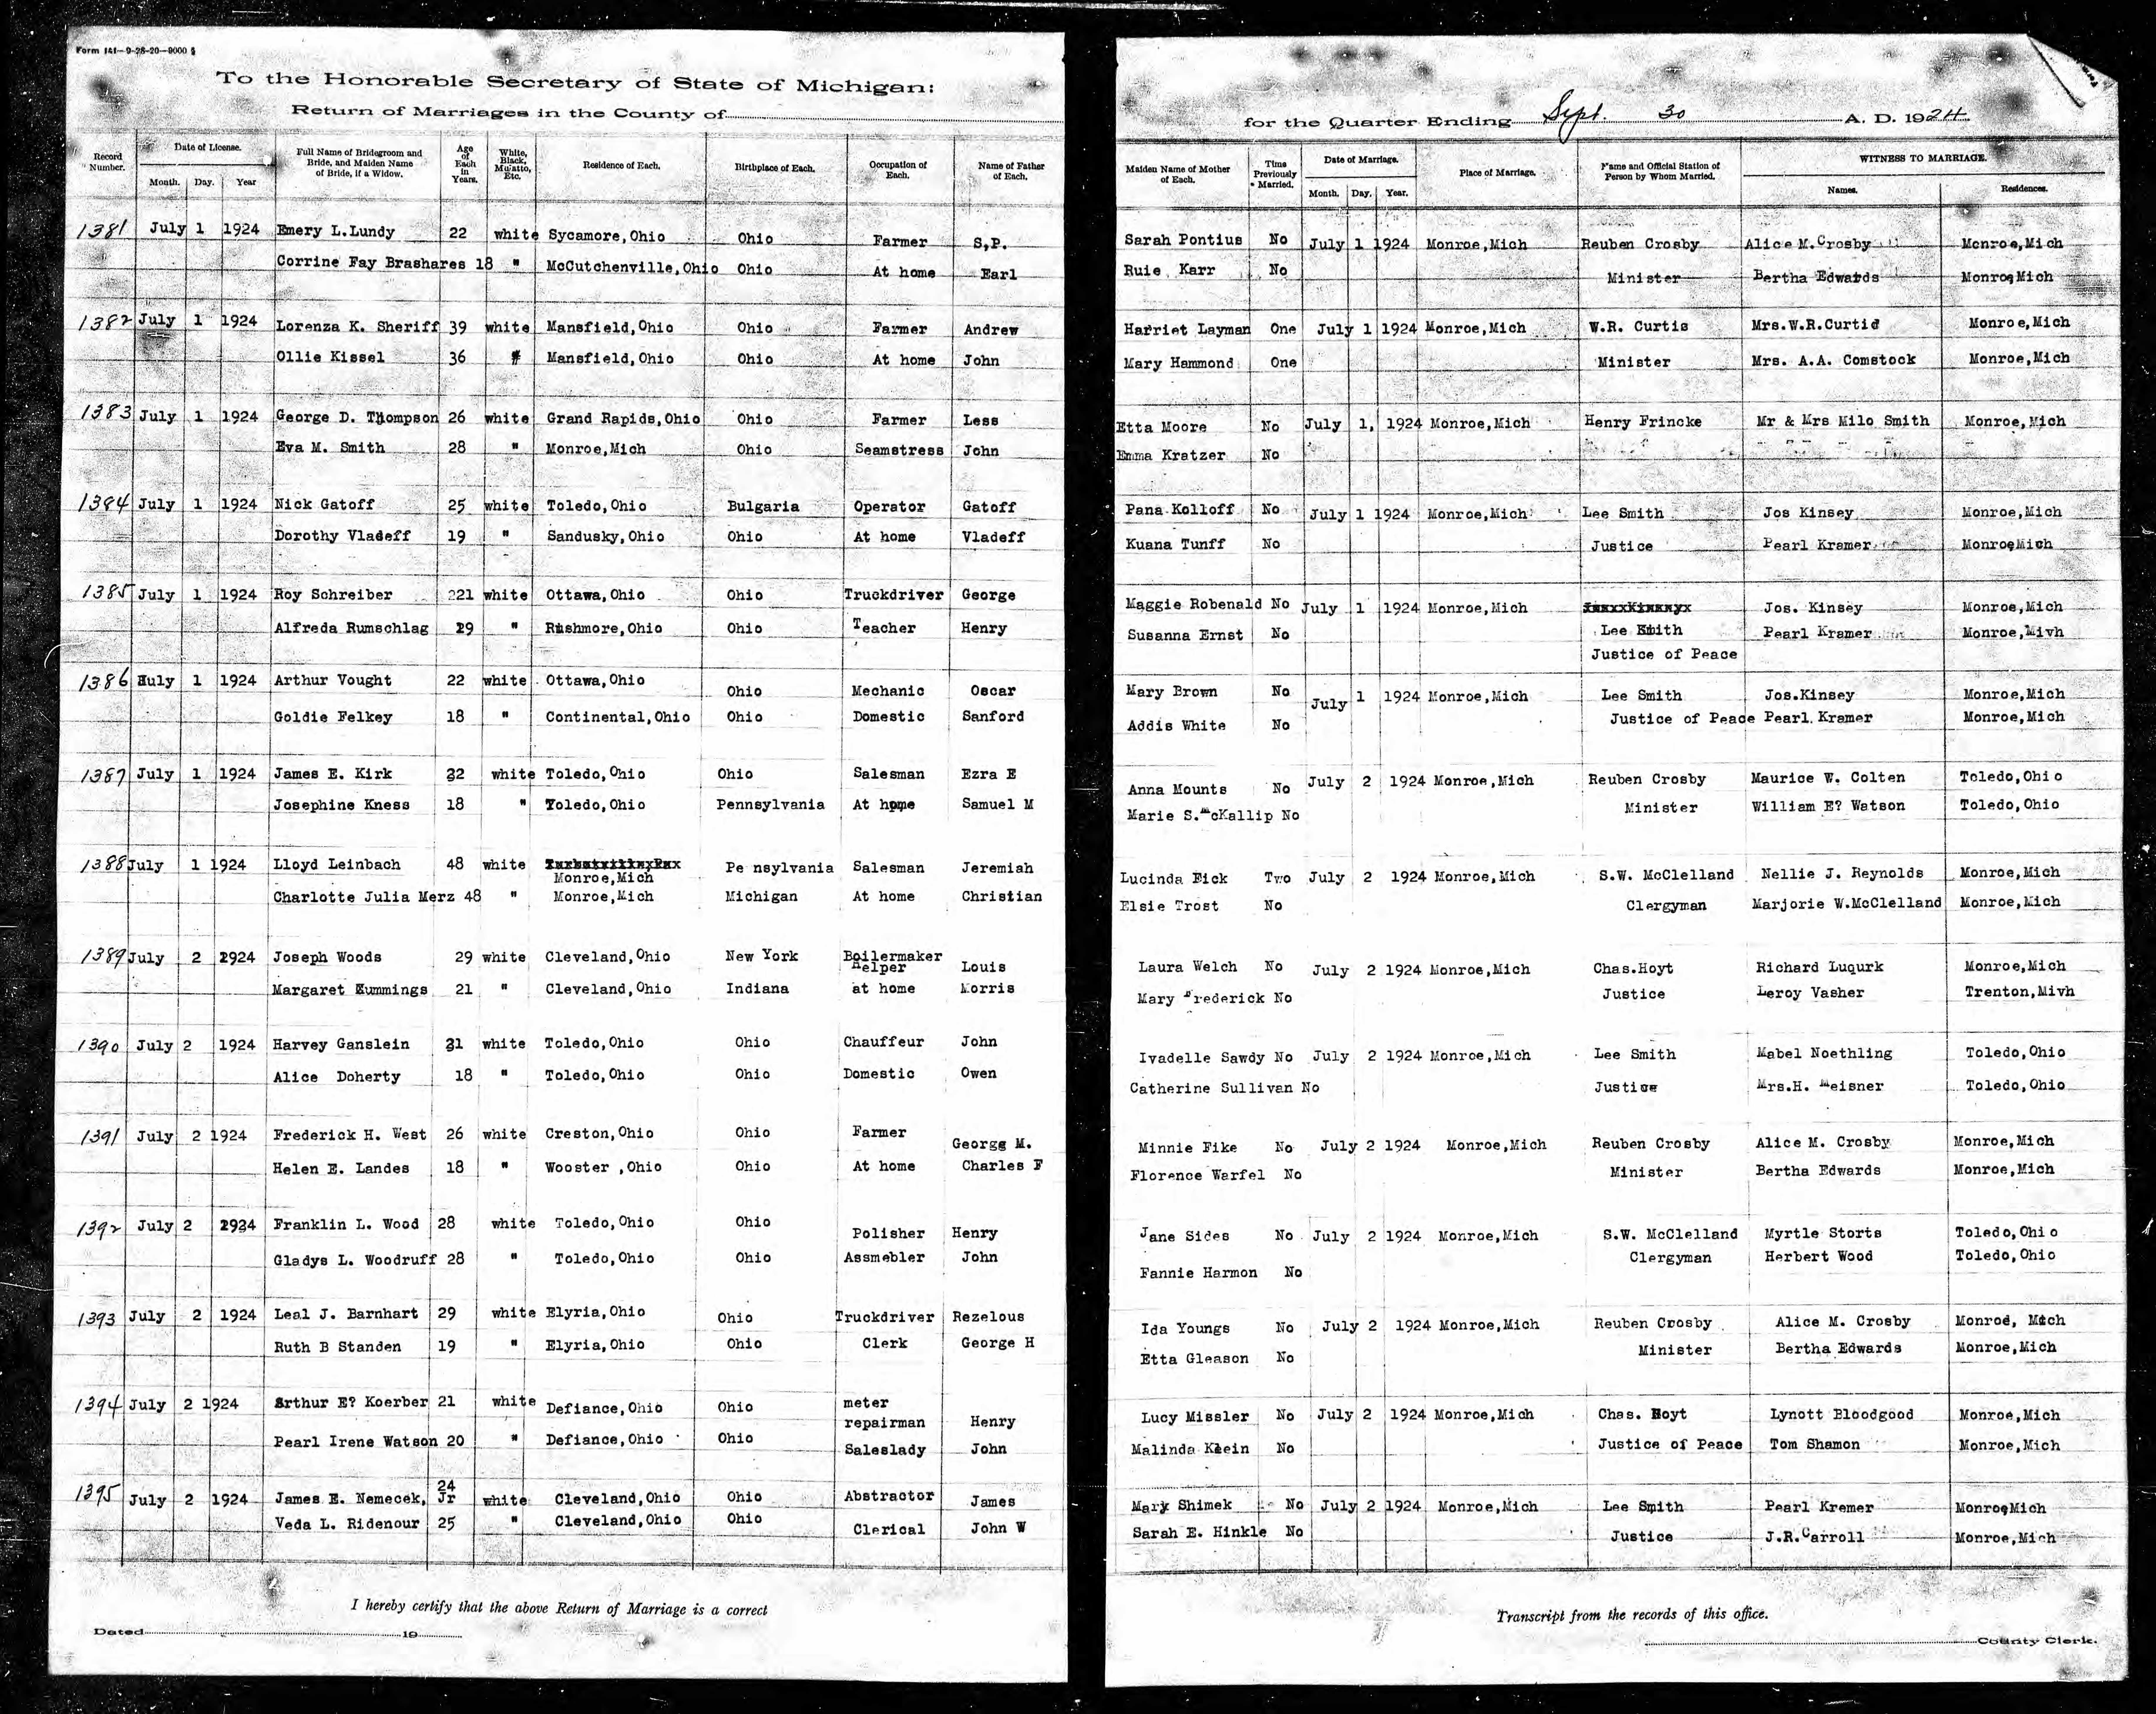 Form 141—9-28-20—9000
To the Honorable Secretary of State of Michigan:
Return of Marriages in the County of
for the Quarter Ending Sept. 30 A. D. 1924
Record Number. Date of License. Month. Day. Year Full Name of Bridegroom and Bride, and Maiden Name of Bride, if a Widow. Age of Each in Years. White, Black, Mulatto, Etc. Residence of Each. Birthplace of Each. Occupation of Each. Name of Father of Each. Maiden Name of Mother of Each. Time Previously Married. Date of Marriage. Month. Day. Year. Place of Marriage. Name and Official Station of Person by Whom Married. WITNESS TO MARRIAGE. Names. Residences.
1381 July 1 1924 Emery L.Lundy 22 white Sycamore,Ohio Ohio Farmer S,P. Sarah Pontius No July 1 1924 Monroe,Mich Reuben Crosby Alice M.Crosby Monroe,Mich
Corrine Fay Brashares 18 " McCutchenville,Ohio Ohio At home Earl Ruie Karr No Minister Bertha Edwards Monroe,Mich
1382 July 1 1924 Lorenza K. Sheriff 39 white Mansfield,Ohio Ohio Farmer Andrew Harriet Layman One July 1 1924 Monroe,Mich W.R. Curtis Mrs.W.R.Curtid Monroe,Mich
Ollie Kissel 36 # Mansfield,Ohio Ohio At home John Mary Hammond One Minister Mrs. A.A. Comstock Monroe,Mich
1383 July 1 1924 George D. Thompson 26 white Grand Rapids,Ohio Ohio Farmer Less Etta Moore No July 1, 1924 Monroe,Mich Henry Frincke Mr & Mrs Milo Smith Monroe,Mich
Eva M. Smith 28 " Monroe,Mich Ohio Seamstress John Emma Kratzer No
1384 July 1 1924 Nick Gatoff 25 white Toledo,Ohio Bulgaria Operator Gatoff Pana Kolloff No July 1 1924 Monroe,Mich Lee Smith Jos Kinsey Monroe,Mich
Dorothy Vladeff 19 " Sandusky,Ohio Ohio At home Vladeff Kuana Tunff No Justice Pearl Kramer Monroe,Mich
1385 July 1 1924 Roy Schreiber 221 white Ottawa,Ohio Ohio Truckdriver George Maggie Robenald No July 1 1924 Monroe,Mich Jos. Kinsey Monroe,Mich
Alfreda Rumschlag 29 " Rushmore,Ohio Ohio Teacher Henry Susanna Ernst No Lee Smith Pearl Kramer Monroe,Mivh
Justice of Peace
1386 July 1 1924 Arthur Vought 22 white Ottawa,Ohio Ohio Mechanic Oscar Mary Brown No July 1 1924 Monroe,Mich Lee Smith Jos.Kinsey Monroe,Mich
Goldie Felkey 18 " Continental,Ohio Ohio Domestic Sanford Addis White No Justice of Peace Pearl Kramer Monroe,Mich
1387 July 1 1924 James E. Kirk 32 white Toledo,Ohio Ohio Salesman Ezra E Anna Mounts No July 2 1924 Monroe,Mich Reuben Crosby Maurice W. Colten Toledo,Ohio
Josephine Kness 18 " Toledo,Ohio Pennsylvania At home Samuel M Marie S.McKallip No Minister William E? Watson Toledo,Ohio
1388 July 1 1924 Lloyd Leinbach 48 white Monroe,Mich Pe nsylvania Salesman Jeremiah Lucinda Bick Two July 2 1924 Monroe,Mich S.W. McClelland Nellie J. Reynolds Monroe,Mich
Charlotte Julia Merz 48 " Monroe,Mich Michigan At home Christian Elsie Trost No Clergyman Marjorie W.McClelland Monroe,Mich
1389 July 2 1924 Joseph Woods 29 white Cleveland,Ohio New York Boilermaker Helper Louis Laura Welch No July 2 1924 Monroe,Mich Chas.Hoyt Richard Luqurk Monroe,Mich
Margaret Kummings 21 " Cleveland,Ohio Indiana at home Morris Mary Frederick No Justice Leroy Vasher Trenton,Mivh
1390 July 2 1924 Harvey Ganslein 31 white Toledo,Ohio Ohio Chauffeur John Ivadelle Sawdy No July 2 1924 Monroe,Mich Lee Smith Mabel Noethling Toledo,Ohio
Alice Doherty 18 " Toledo,Ohio Ohio Domestic Owen Catherine Sullivan No Justice Mrs.H. Meisner Toledo,Ohio
1391 July 2 1924 Frederick H. West 26 white Creston,Ohio Ohio Farmer George M. Minnie Fike No July 2 1924 Monroe,Mich Reuben Crosby Alice M. Crosby Monroe,Mich
Helen E. Landes 18 " Wooster ,Ohio Ohio At home Charles F Florence Warfel No Minister Bertha Edwards Monroe,Mich
1392 July 2 1924 Franklin L. Wood 28 white Toledo,Ohio Ohio Polisher Henry Jane Sides No July 2 1924 Monroe,Mich S.W. McClelland Myrtle Storts Toledo,Ohio
Gladys L. Woodruff 28 " Toledo,Ohio Ohio Assmebler John Fannie Harmon No Clergyman Herbert Wood Toledo,Ohio
1393 July 2 1924 Leal J. Barnhart 29 white Elyria,Ohio Ohio Truckdriver Rezelous Ida Youngs No July 2 1924 Monroe,Mich Reuben Crosby Alice M. Crosby Monroe, Mich
Ruth B Standen 19 " Elyria,Ohio Ohio Clerk George H Etta Gleason No Minister Bertha Edwards Monroe,Mich
1394 July 2 1924 Arthur E? Koerber 21 white Defiance,Ohio Ohio meter repairman Henry Lucy Missler No July 2 1924 Monroe,Mich Chas. Hoyt Lynott Bloodgood Monroe,Mich
Pearl Irene Watson 20 " Defiance,Ohio Ohio Saleslady John Malinda Klein No Justice of Peace Tom Shamon Monroe,Mich
1395 July 2 1924 James E. Nemecek, Jr 24 white Cleveland,Ohio Ohio Abstractor James Mary Shimek No July 2 1924 Monroe,Mich Lee Smith Pearl Kremer Monroe,Mich
Veda L. Ridenour 25 " Cleveland,Ohio Ohio Clerical John W Sarah E. Hinkle No Justice J.R.Carroll Monroe,Mich
I hereby certify that the above Return of Marriage is a correct Transcript from the records of this office.
Dated 19 County Clerk.